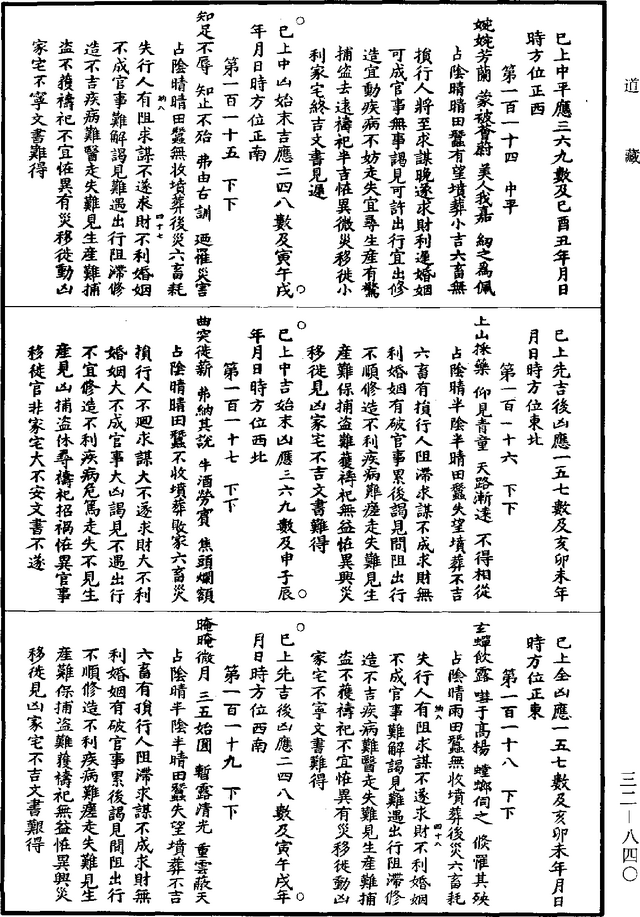 道藏
巳上中平應三六九數及巳酉丑年月日
時方位正西
第一百一十四　中平
婉婉芳蘭　蒙被會蔚　美人我嘉　紉之爲佩
占陰晴晴田蠶有望墳葬小吉六畜無
損行人將至求謀晚遂求財利遲婚姻
可成官事無事謁見可許出行宜出修
造宜動疾病不妨走失宜尋生産有驚
捕盜去遠禱祀半吉恠異微災移徙小
利家宅終吉文書見遲
巳上中凶始末吉應二四八數及寅午戌
年月日時方位正南
第一百一十五　下下
知足不辱　知止不殆　弗由古訓　迺罹災害
占陰晴晴田蠶無收墳葬後災六畜耗
失行人有阻求謀不遂求財不利婚姻
納八　四十七
不成官事難解謁見難遇出行阻滯修
造不吉疾病難醫走失難見生産難捕
盜不獲禱祀不宜恠異有災移徙動凶
家宅不寧文書難得
巳上先吉後凶應一五七數及亥卯未年
月日時方位東北
第一百一十六　下下
上山採藥　仰見青童　天路漸逵　不得相從
占陰晴半陰半晴田蠶失望墳葬不吉
六畜有損行人阻滯求謀不成求財無
利婚姻有破官事累後謁見問阻出行
不順修造不利疾病難瘥走失難見生
産難保捕盜難獲禱祀無益恠異興災
移徙見凶家宅不吉文書難得
巳上中吉始末凶應三六九數及申子辰
年月日時方位西北
第一百一十七　下下
曲突徙薪　弗納其說　牛酒勞賓　焦頭爛額
占陰晴晴田蠶不收墳葬敗家六畜災
損行人不廻求謀大不遂求財大不利
婚姻大不成官事大凶謁見不遇出行
不宜修造不利疾病危篤走失不見生
産見凶捕盜休尋禱祀招禍恠異官事
移徙官非家宅大不安文書不遂
巳上全凶應一五七數及亥卯未年月日
時方位正東
第一百一十八　下下
玄蟬飲露　嘒于高楊　螳螂伺之　倏罹其殃
占陰晴雨田蠶無收墳葬後災六畜耗
失行人有阻求謀不遂求財不利婚姻
納八　四十八
不成官事難解謁見難遇出行阻滯修
造不吉疾病難醫走失難見生産難捕
盜不獲禱祀不宜恠異有災移徙動凶
家宅不寧文書難得
巳上先吉後凶應二四八數及寅午戌年
月日時方位西南
第一百一十九　下下
晻晻微月　三五始圓　暫露清光　重雲蔽天
占陰晴半陰半晴田蠶失望墳葬不吉
六畜有損行人阻滯求謀不成求財無
利婚姻有破官事累後謁見間阻出行
不順修造不利疾病難瘥走失難見生
産難保捕盜難獲禱祀無益恠異興災
移徙見凶家宅不吉文書艱得
三二—八四〇